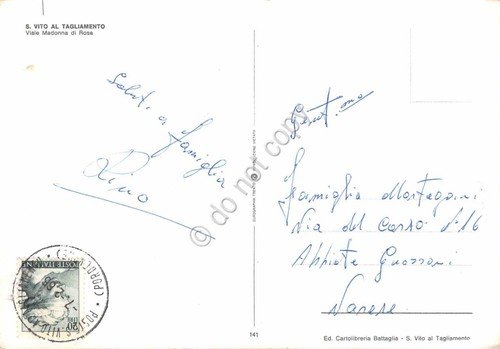 S. VITO AL TAGLIAMENTO
Viale Madonna di Rosa
Saluti a famiglia
Rino
Gent.mo
Famiglia Montagnini
Via del Corso N° 16
Abbiate Guazzoni
Varese
do not copy
141
Ed. Cartolibreria Battaglia - S. Vito al Tagliamento
POSTE ITALIANE